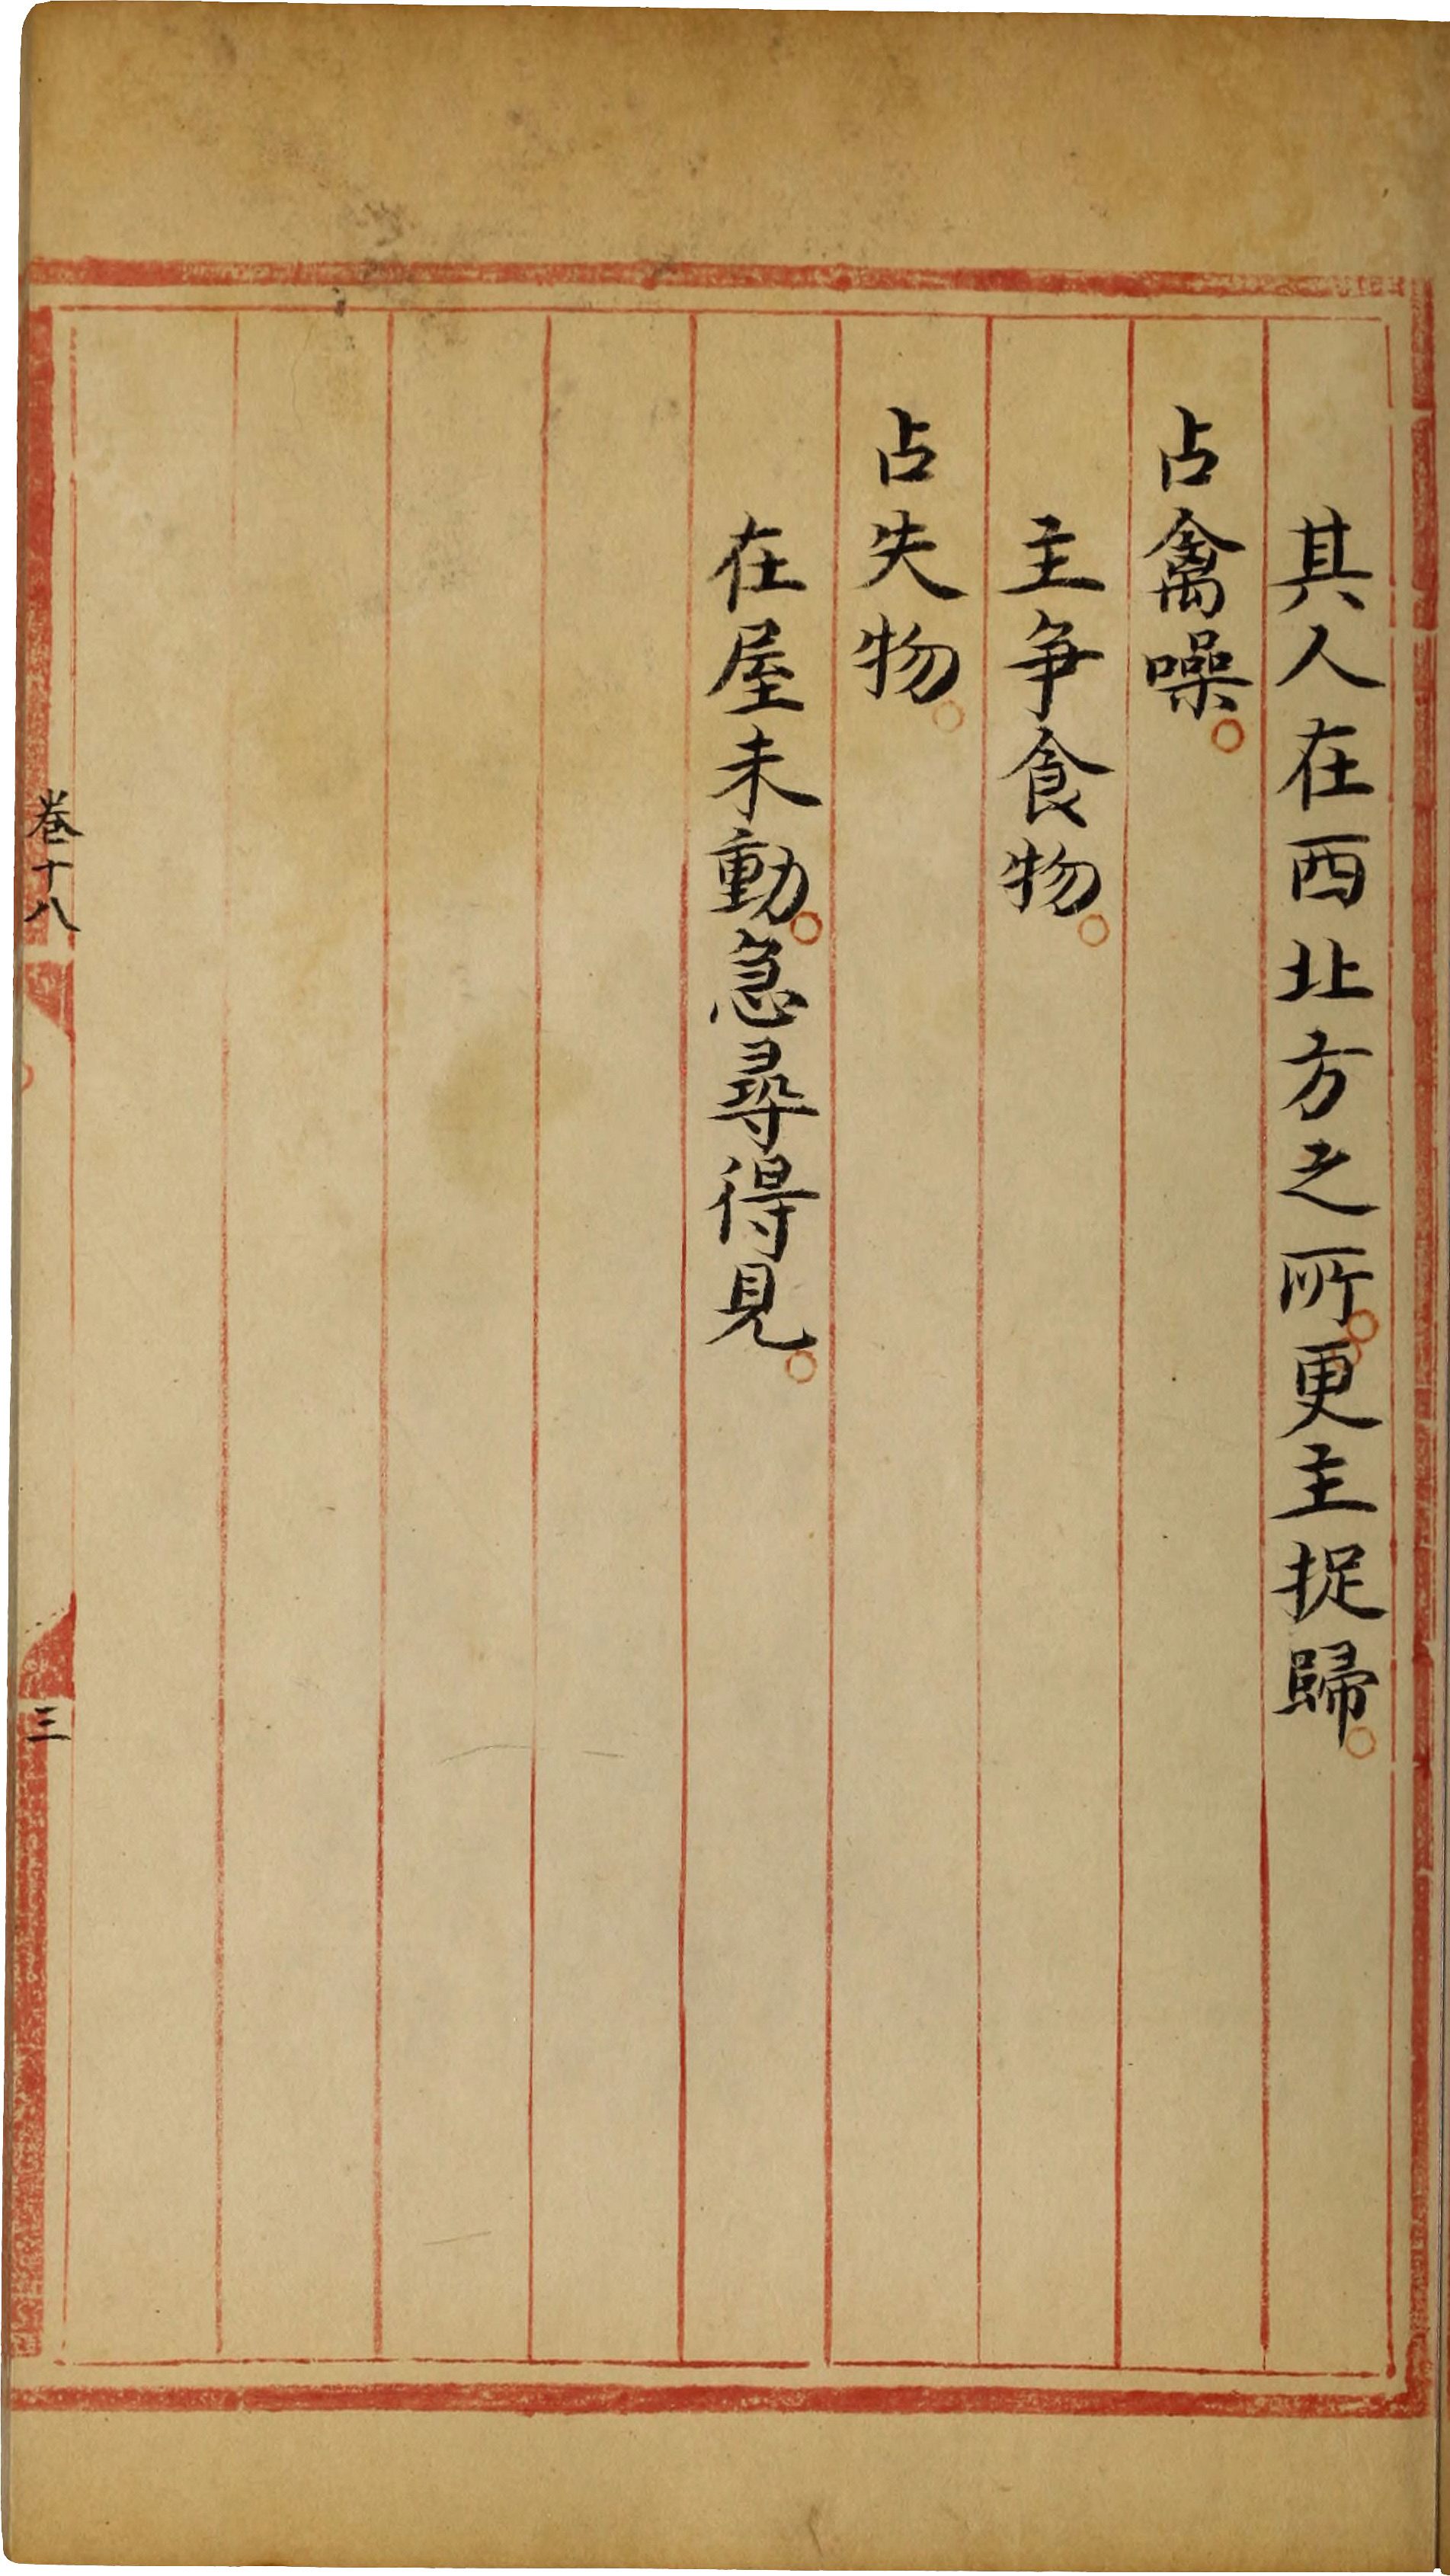 其人在西北方之所。更主捉歸。
占禽噪。
主争食物。
占失物。
在屋未動。急尋得見。
卷十八
三